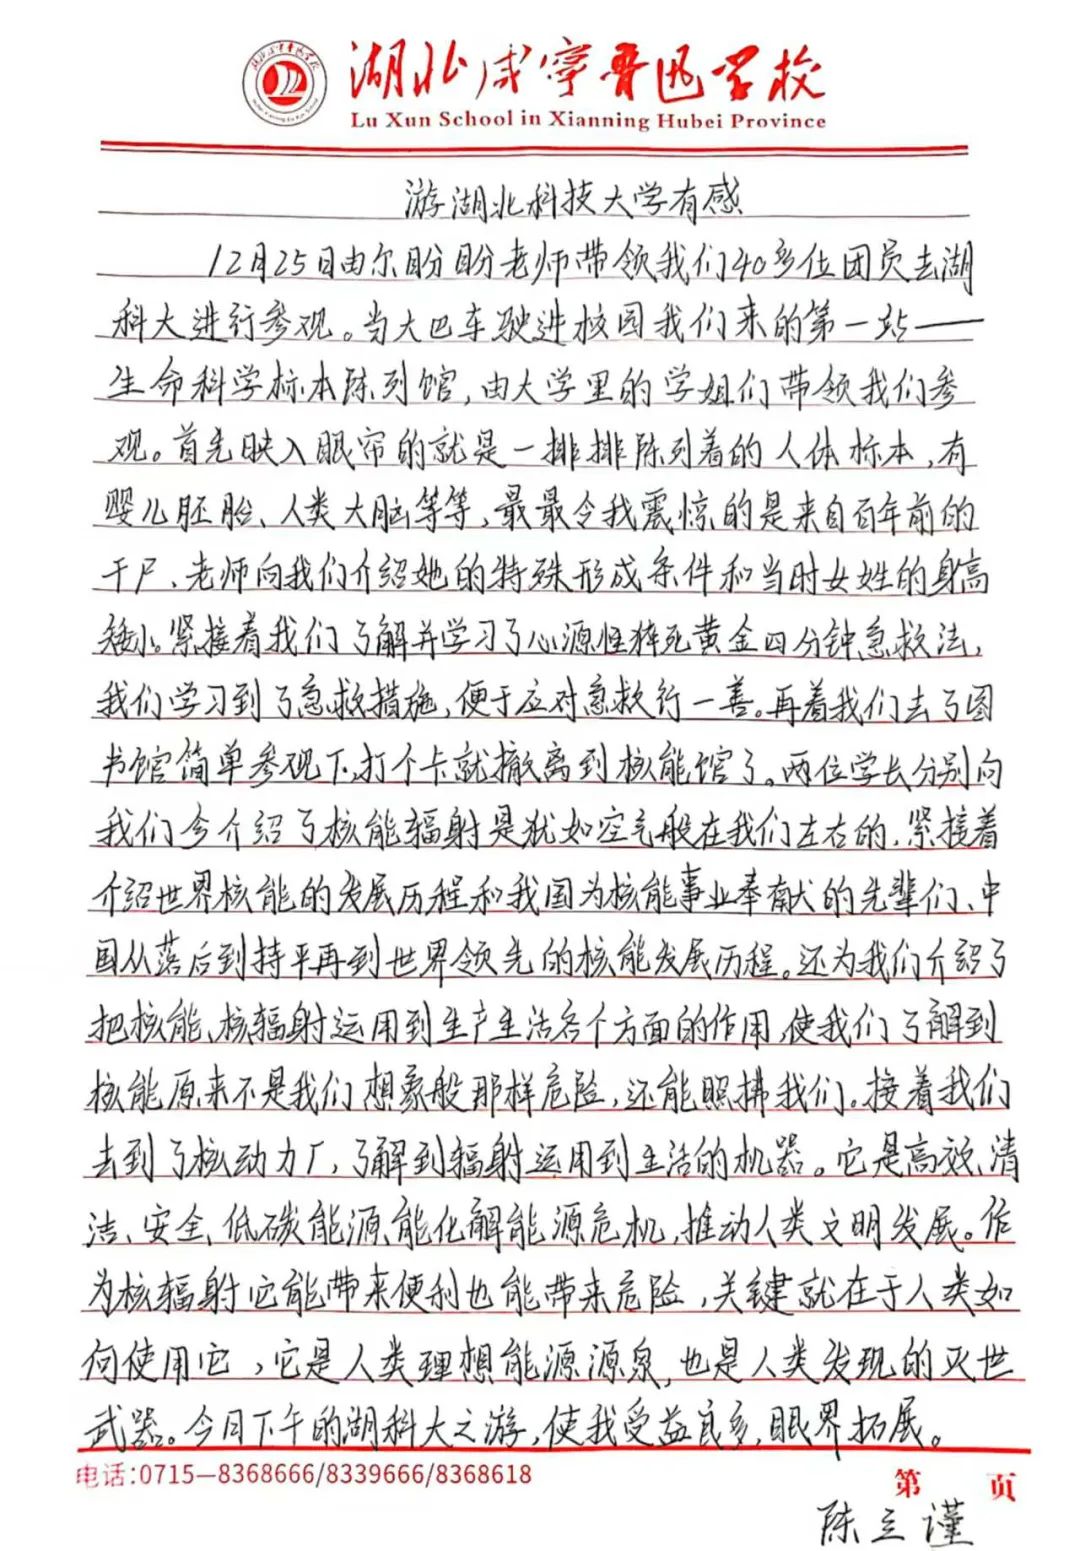 湖北咸宁鲁迅学校
Lu Xun School in Xianning Hubei Province
游湖北科技大学有感
12月25日由尔盼盼老师带领我们40多位团员去湖
科大进行参观。当大巴车驶进校园我们来的第一站——
生命科学标本陈列馆,由大学里的学姐们带领我们参
观。首先映入眼帘的就是一排排陈列着的人体标本,有
婴儿胚胎、人类大脑等等,最最令我震惊的是来自百年前的
干尸、老师向我们介绍她的特殊形成条件和当时女姓的身高
矮小。紧接着我们了解并学习了心源性猝死黄金四分钟急救法,
我们学习到了急救措施,便于应对急救行一善。再着我们去了图
书馆简单参观下,打个卡就撤离到核能馆了。两位学长分别向
我们今介绍了核能辐射是犹如空气般在我们左右的,紧接着
介绍世界核能的发展历程和我国为核能事业奉献的先辈们、中
国从落后到持平再到世界领先的核能发展历程。还为我们介绍了
把核能、核辐射运用到生产生活各个方面的作用,使我们了解到
核能原来不是我们想象般那样危险,还能照拂我们。接着我们
去到了核动力厂,了解到辐射运用到生活的机器。它是高效、清
洁、安全、低碳能源,能化解能源危机,推动人类文明发展。作
为核辐射它能带来便利也能带来危险,关键就在于人类如
何使用它,它是人类理想能源源泉,也是人类发现的灭世
武器。今日下午的湖科大之游,使我受益良多,眼界拓展。
电话:0715—8368666/8339666/8368618
第 页
陈立谨